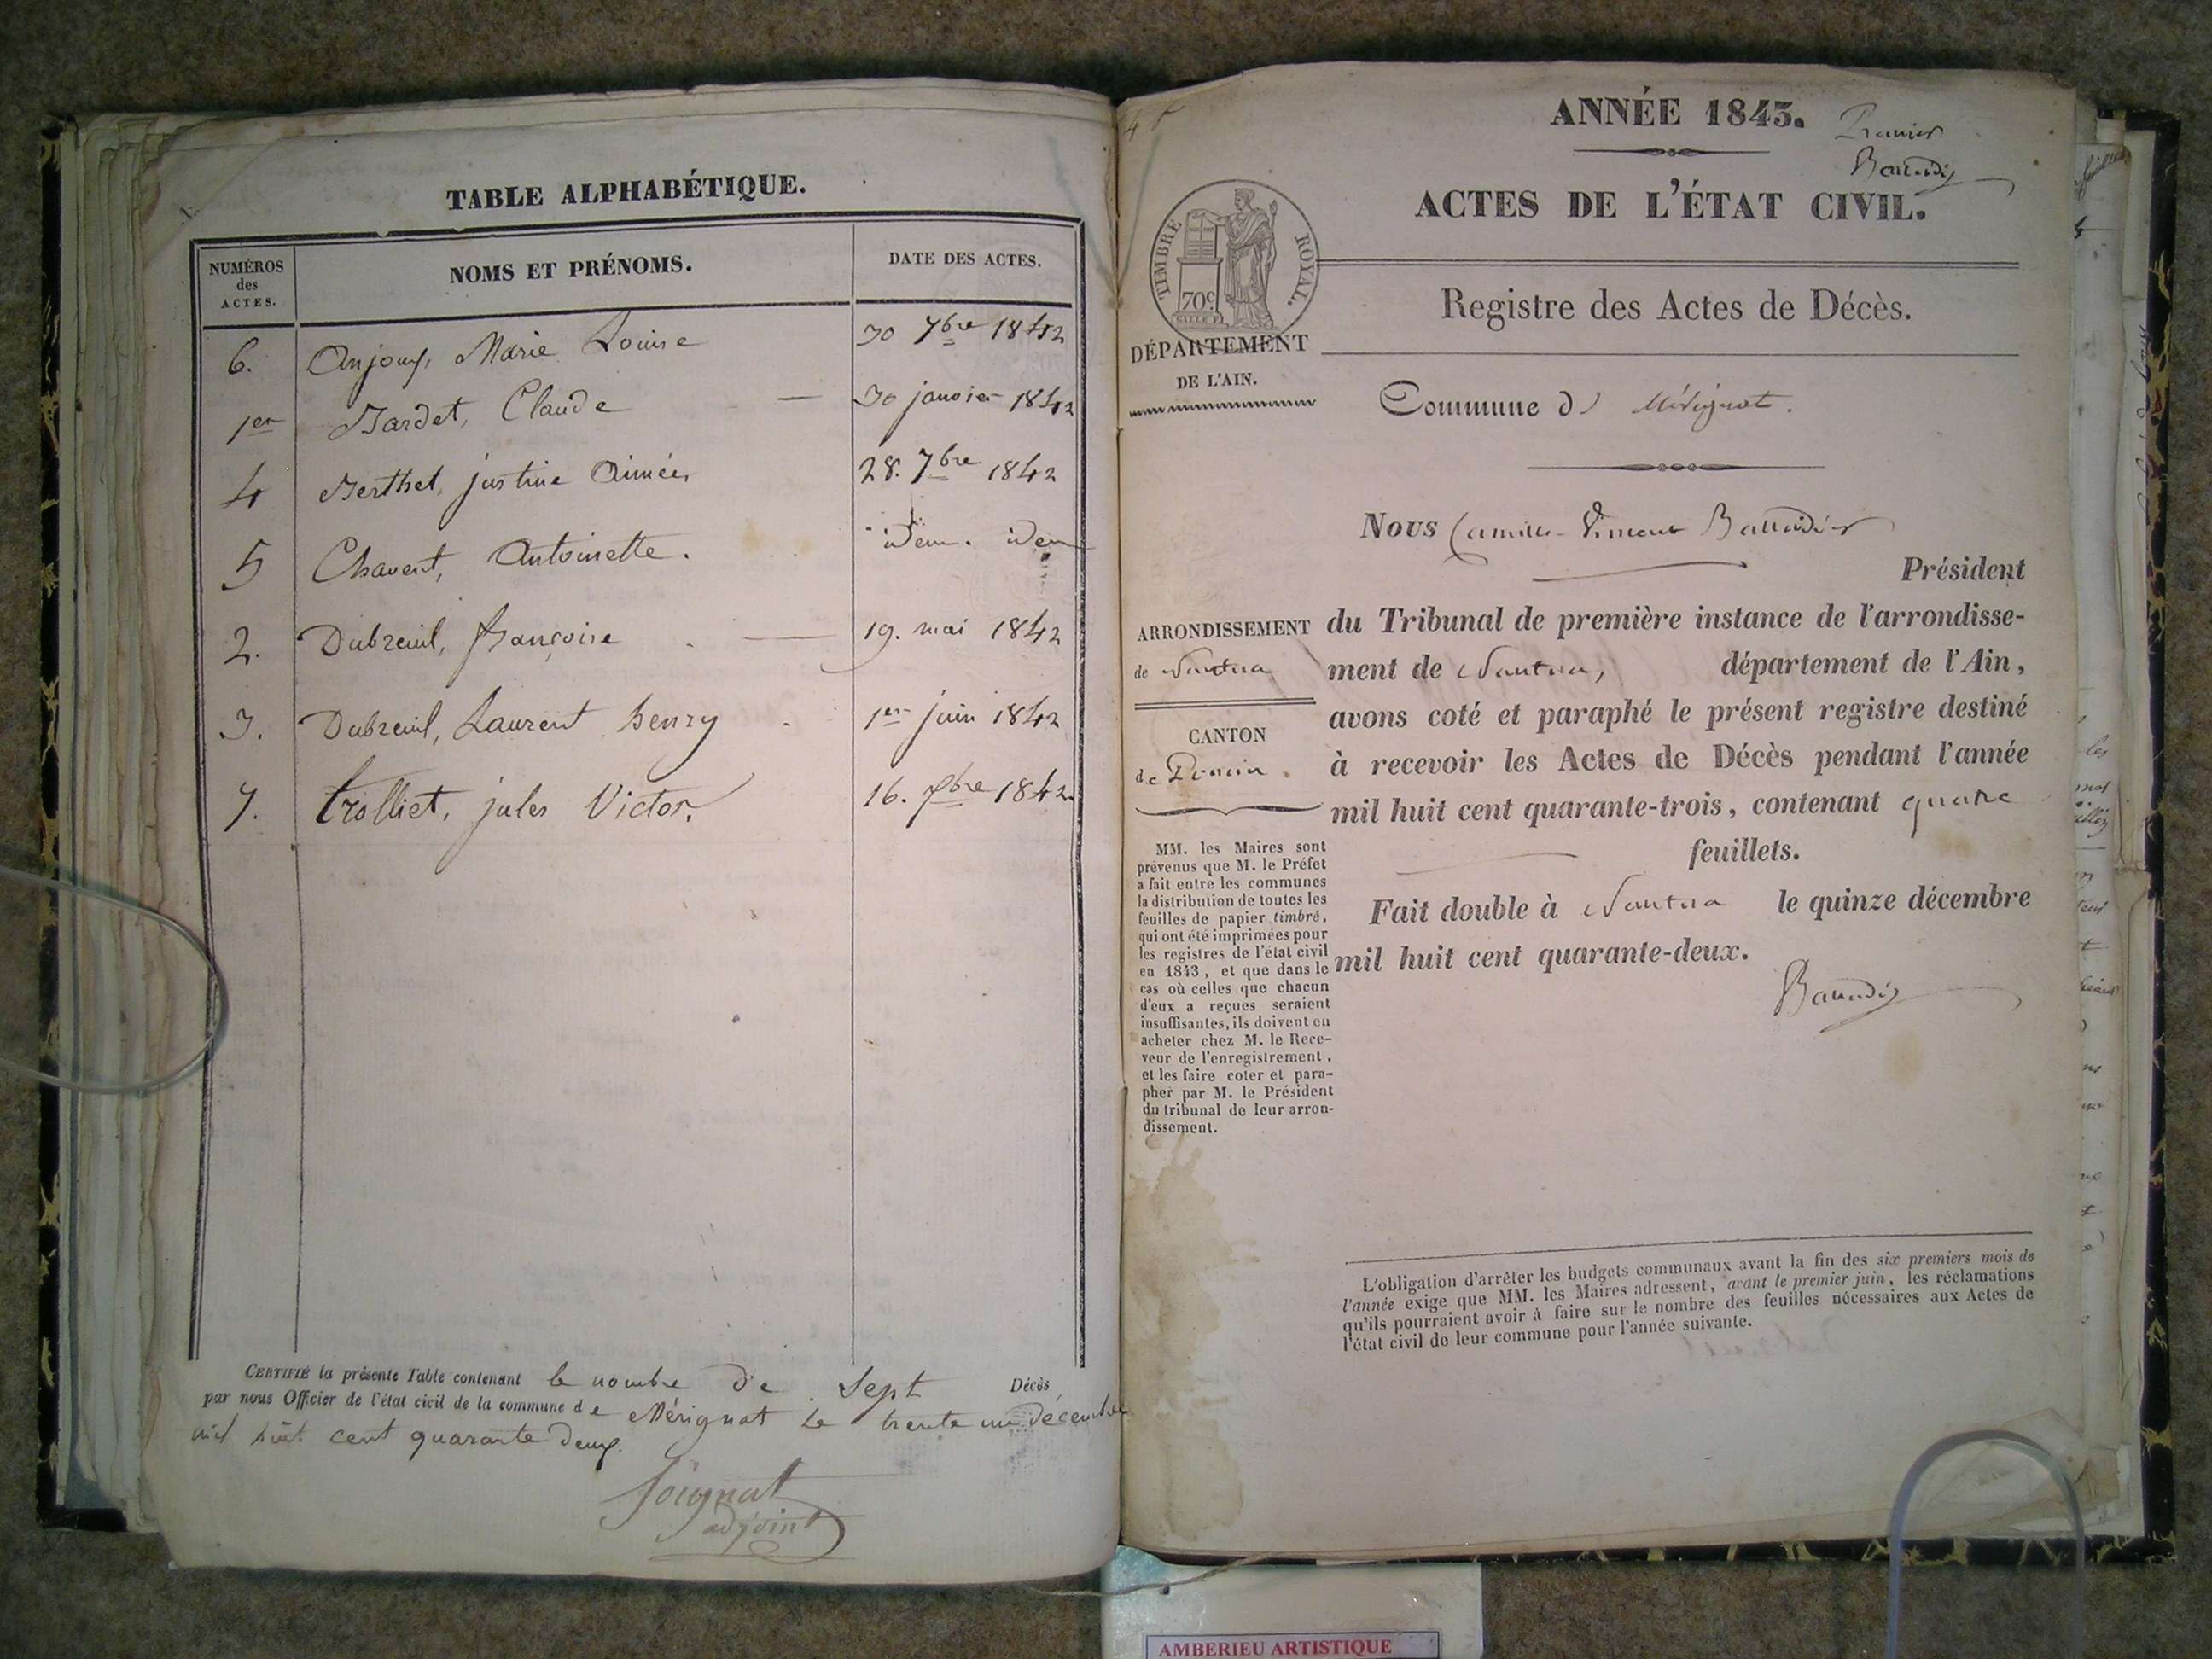 TABLE ALPHABÉTIQUE.
NUMÉROS des ACTES. NOMS ET PRÉNOMS. DATE DES ACTES.
6. Marie Louise 30 7bre 1842
1er Bardet, Claude 30 janvier 1842
4 Berthet, justine Aimée, 28. 7bre 1842
5 Chavent, Antoinette. idem. idem
2. Dubreuil, françoise 19. mai 1842
3. Dubreuil, Laurent henry 1er juin 1842
7. trolliet, jules Victor. 16. 1842
CERTIFIÉ la présente Table contenant le nombre de Sept Décès
par nous Officier de l'état civil de la commune de Mérignat le trente un décembre
mil huit cent quarante deux.
adjoint
ANNÉE 1843.
Premier
ACTES DE L'ÉTAT CIVIL.
TIMBRE ROYAL.
70c
Registre des Actes de Décès.
DÉPARTEMENT
DE L'AIN.
Commune de Mérignat.
Nous Camille Vincent
Président
du Tribunal de première instance de l'arrondisse-
ment de Nantua, département de l'Ain,
avons coté et paraphé le présent registre destiné
à recevoir les Actes de Décès pendant l'année
mil huit cent quarante-trois, contenant quatre
feuillets.
Fait double à Nantua le quinze décembre
mil huit cent quarante-deux.
ARRONDISSEMENT
de Nantua
CANTON
de Poncin.
MM. les Maires sont
prévenus que M. le Préfet
a fait entre les communes
la distribution de toutes les
feuilles de papier timbré,
qui ont été imprimées pour
les registres de l'état civil
en 1843, et que dans le
cas où celles que chacun
d'eux a reçues seraient
insuffisantes, ils doivent en
acheter chez M. le Rece-
veur de l'enregistrement,
et les faire coter et para-
pher par M. le Président
du tribunal de leur arron-
dissement.
L'obligation d'arrêter les budgets communaux avant la fin des six premiers mois de
l'année exige que MM. les Maires adressent, avant le premier juin, les réclamations
qu'ils pourraient avoir à faire sur le nombre des feuilles nécessaires aux Actes de
l'état civil de leur commune pour l'année suivante.
AMBERIEU ARTISTIQUE